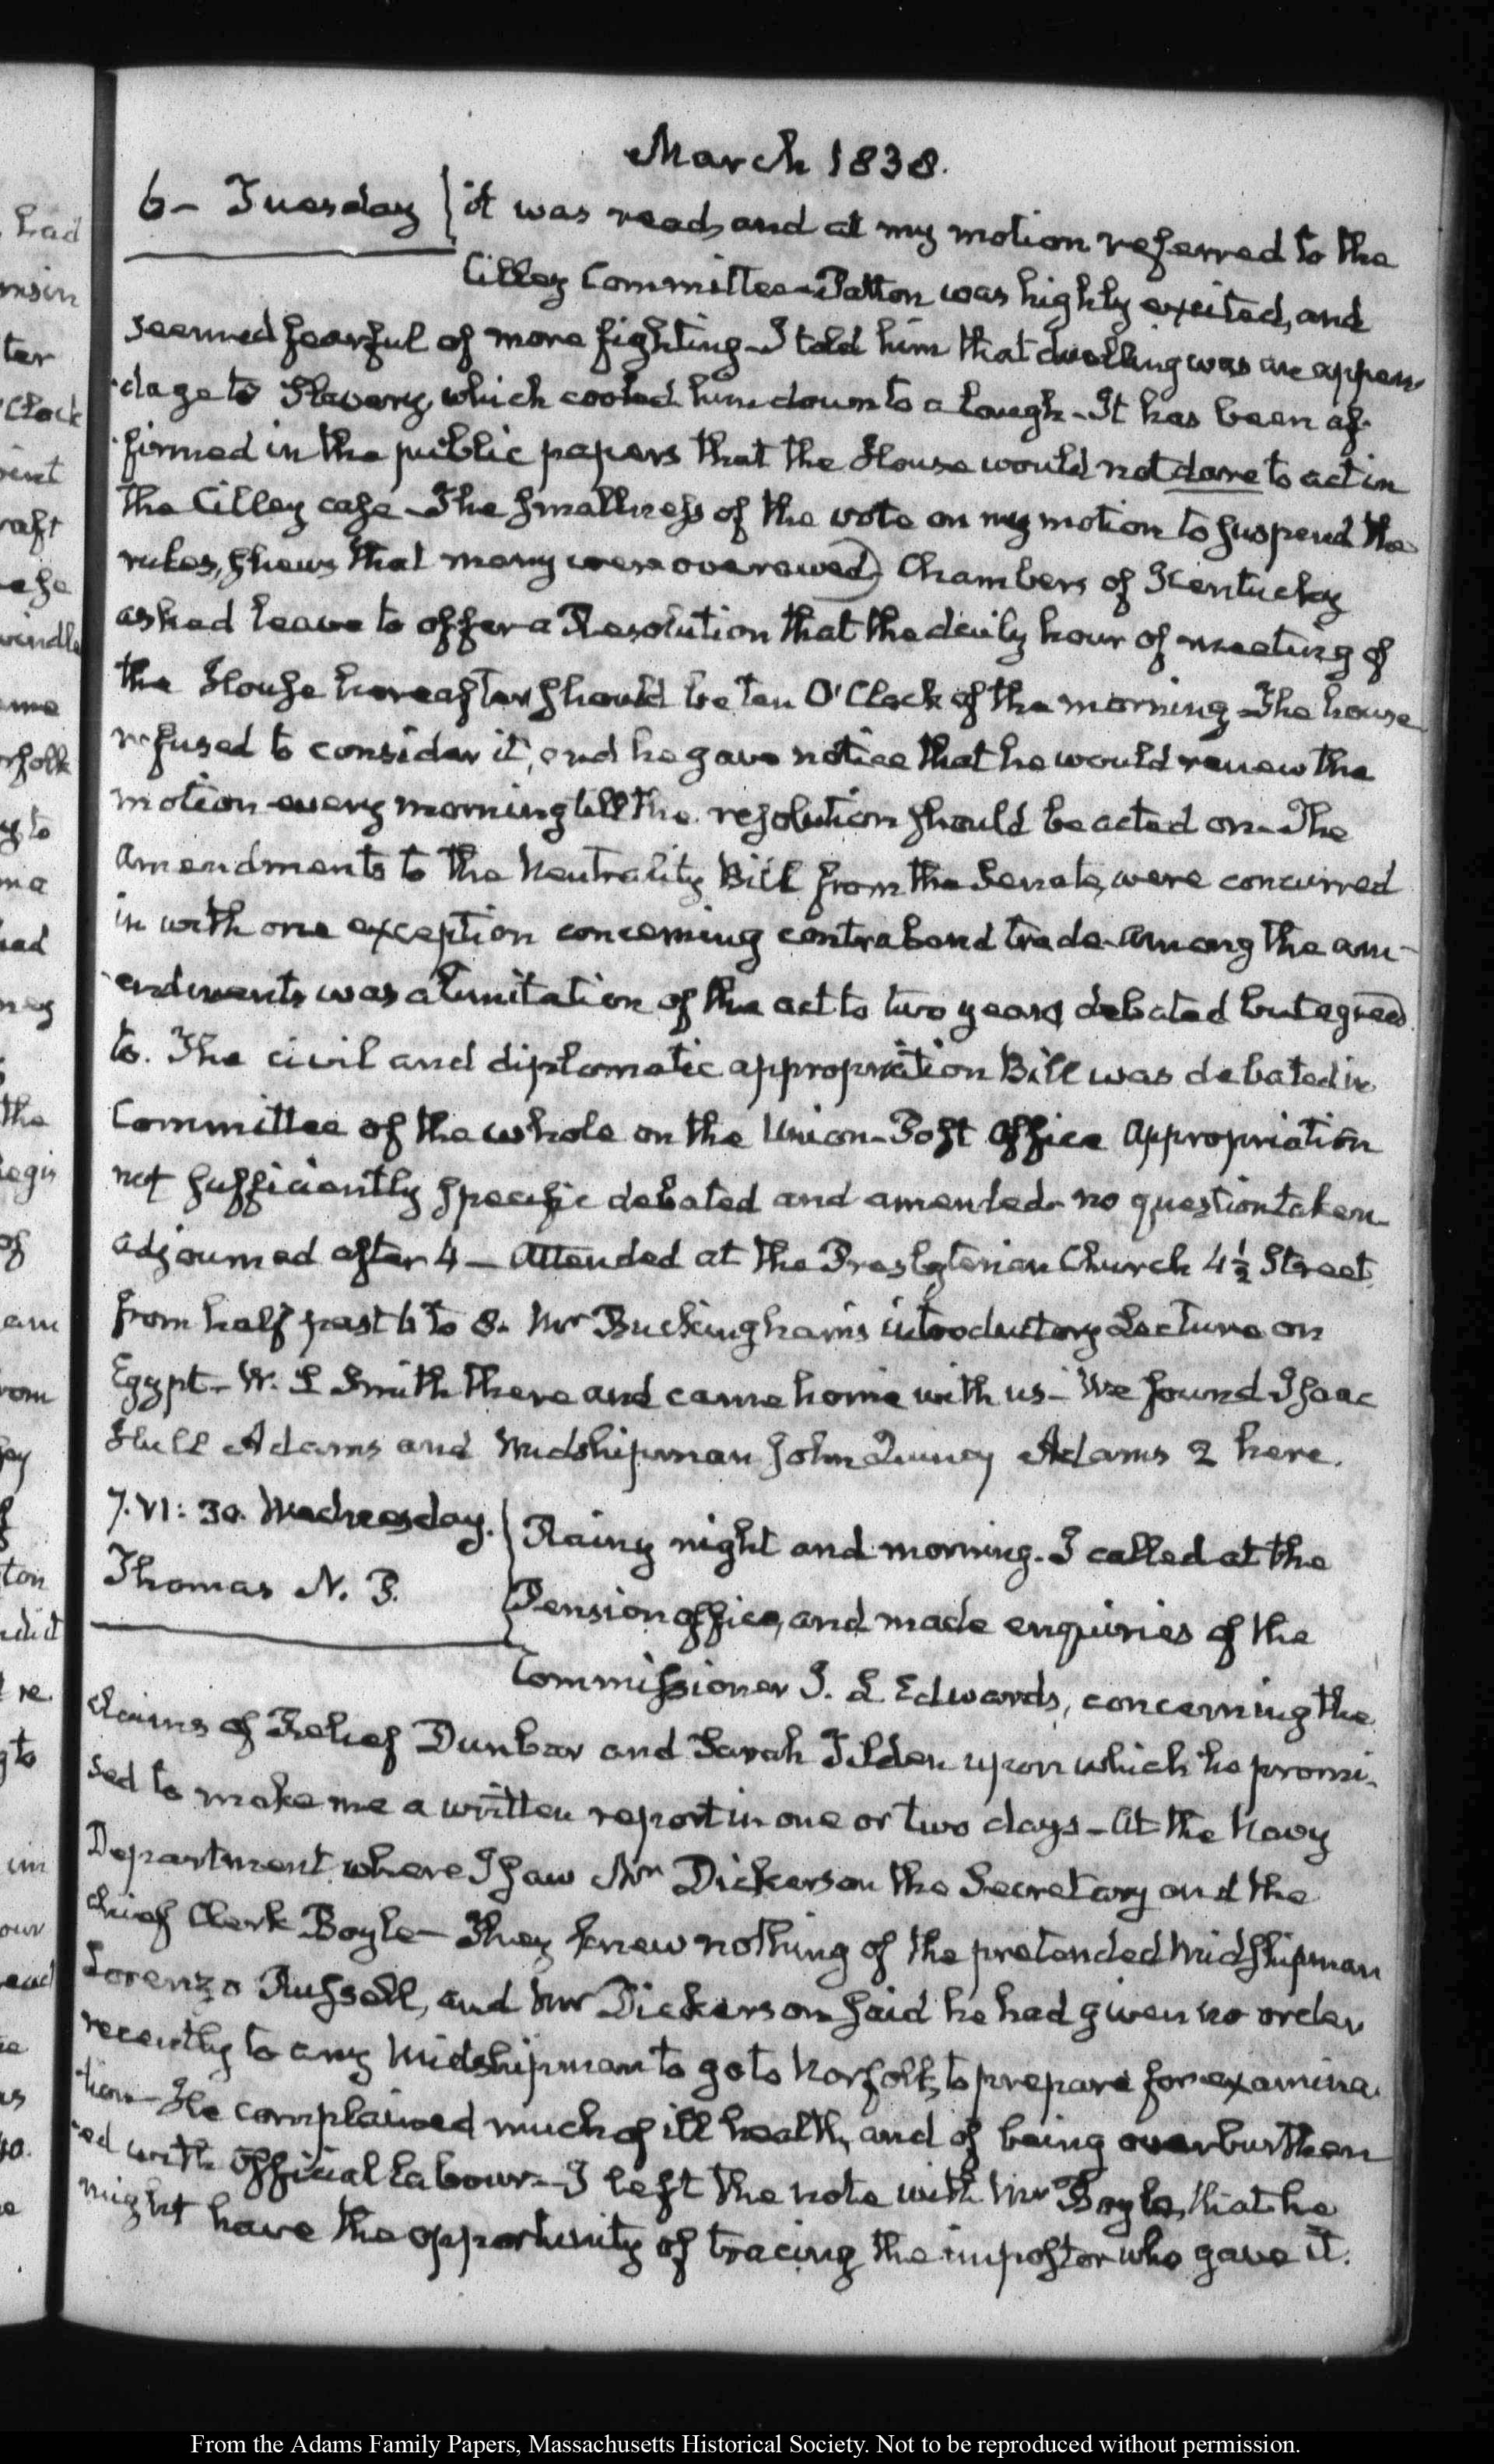 March 1838.
6 – Tuesday } it was read, and at my motion referred to the
Cilley Committee – Patton was highly excited, and
seemed fearful of more fighting – I told him that duelling was an appen-
-dage to Slavery, which cooled him down to a laugh – It has been af-
-firmed in the public papers that the House would not dare to act in
the Cilley case – The smallness of the vote on my motion to suspend the
rules, shews that many were overawed) Chambers of Kentucky
asked leave to offer a Resolution that the daily hour of meeting of
the House hereafter should be ten O'Clock of the morning – The house
refused to consider it, and he gave notice that he would renew the
motion every morning till the resolution should be acted on – The
amendments to the Neutrality Bill from the Senate, were concurred
in with one exception concerning contraband trade – Among the am-
-endments was a limitation of the act to two years, debated but agreed
to. The civil and diplomatic appropriation Bill was debated in
Committee of the whole on the Union – Post Office appropriation
not sufficiently specific debated and amended – no question taken –
adjourned after 4 – Attended at the Presbyterian Church 4½ Street
from half past 6 to 8. Mr Buckingham's introductory Lecture on
Egypt – W. S Smith there and came home with us – We found Isaac
Hull Adams and Midshipman John Quincy Adams 2 here.
7. VI: 30. Wednesday. } Rainy night and morning. I called at the
Thomas N. B. Pension office, and made enquiries of the
Commissioner J. L Edwards, concerning the
claims of Relief Dunbar and Sarah Tilden upon which he promi-
sed to make me a written report in one or two days – At the Navy
Department where I saw Mr Dickerson the Secretary and the
chief Clerk Boyle – They knew nothing of the pretended Midshipman
Lorenzo Russell, and Mr Dickerson said he had given no order
recently to any Midshipman to go to Norfolk, to prepare for examina-
-tion – He complained much of ill health, and of being overburthen
-ed with official labour – I left the note with Mr Boyle, that he
might have the opportunity of tracing the impostor who gave it.
From the Adams Family Papers, Massachusetts Historical Society. Not to be reproduced without permission.